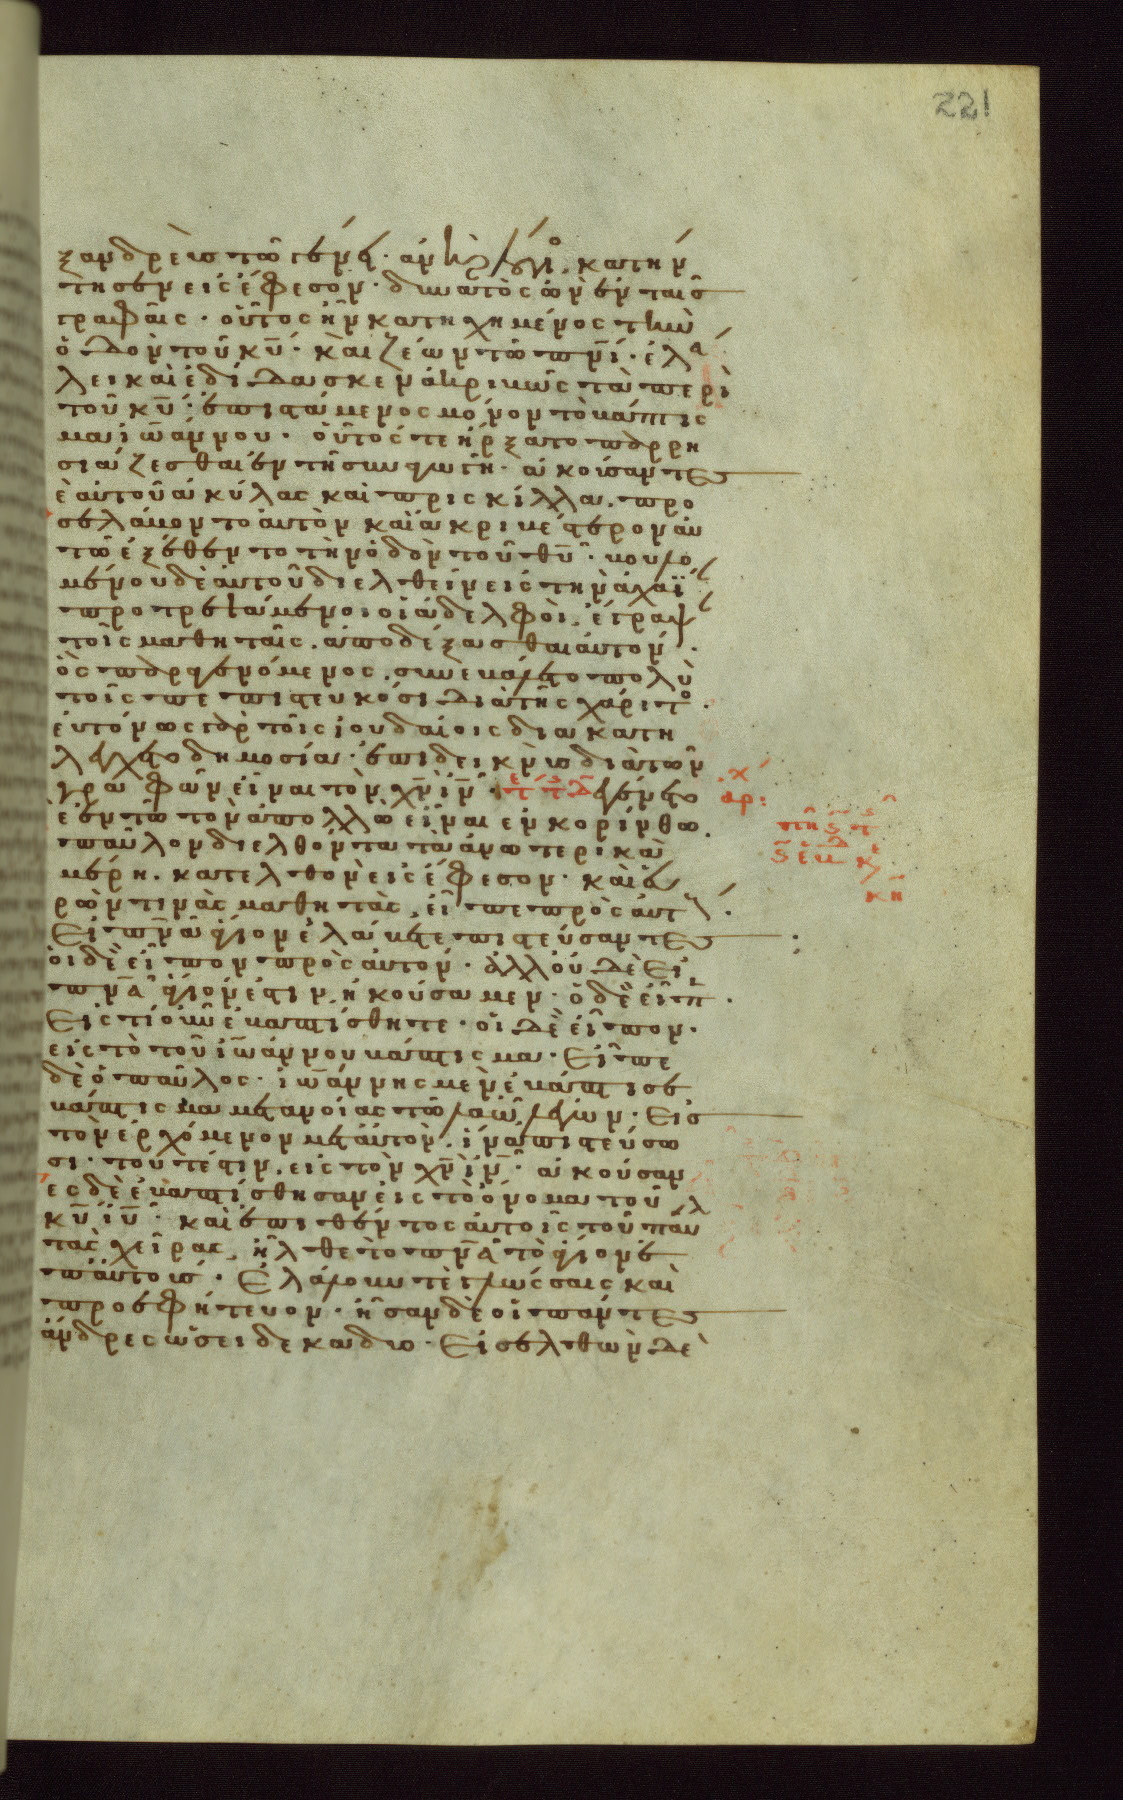 221
ξανδρεὺς τῶ γένει. ἀνὴρ λόγιο. κατην
τησεν εἰς ἔφεσον. δυνατὸς ὢν ἐν ταῖς
γραφαῖς. οὗτος ἦν κατηχημένος τὴν
ὁδὸν τοῦ κυ. καὶ ζέων τῶ πνι. ἐλα
λει καὶ ἐδίδασκεν ἀκριβῶς τὰ περὶ
τοῦ κυ. ἐπιστάμενος μόνον τὸ βάπτις
μα ἰωάννου. οὗτός τε ἤρξατο παρρη
σιάζεσθαι ἐν τῆ συναγωγῆ. ἀκούσαντες
δὲ αὐτοῦ ἀκύλας καὶ πρισκίλλα. προ
σελάβοντο αὐτὸν καὶ ἀκριβέστερον αὐ
τῶ ἐξέθεντο τὴν ὁδὸν τοῦ θυ. βουλο
μένου δὲ αὐτοῦ διελθεῖν εἰς τὴν ἀχαΐ
προτρεψάμενοι οἱ ἀδελφοὶ. ἔγραψ
τοῖς μαθηταῖς. ἀποδέξασθαι αὐτόν.
ὃς παραγενόμενος. συνεβάλετο πολὺ
τοῖς πεπιστευκόσι διὰ τῆς χάριτο.
εὐτόνως γὰρ τοῖς ἰουδαίοις διακατη
λέγχετο δημοσία. ἐπιδεικνὺς διὰ τῶν
γραφῶν εἶναι τὸν χν ιν. ἐγένετο
δὲ ἐν τῶ τὸν ἀπολλὼ εἶναι ἐν κορίνθω.
παῦλον διελθόντα τὰ ἀνωτερικὰ
μέρη. κατελθὸν εἰς ἔφεσον. καὶ εὑ
ρὼν τινὰς μαθητὰς. εἶπε πρὸς αὐτ.
Εἰ πνα ἅγιον ἐλάβετε πιστεύσαντες;
οἱ δὲ εἶπον πρὸς αὐτόν. ἀλλ' οὐδὲ εἰ
πνα ἅγιόν ἐστιν ἠκούσαμεν. ὁ δὲ εἶπ.
Εἰς τί οὖν ἐβαπτίσθητε. οἱ δὲ εἶπον.
εἰς τὸ τοῦ ἰωάννου βάπτισμα. Εἶπε
δὲ ὁ παῦλος. ἰωάννης μὲν ἐβάπτισε
βάπτισμα μετανοίας τῶ λαῶ λέγων. Εἰς
τὸν ἐρχόμενον μετ αὐτὸν. ἵνα πιστεύσω
σι. τουτέστιν. εἰς τὸν χν ιν. ἀκούσαν
ες δὲ ἐβαπτίσθησαν εἰς τὸ ὄνομα τοῦ
κυ ιυ. καὶ ἐπιθέντος αὐτοῖς τοῦ παύλ
τὰς χεῖρας. ἦλθε τὸ πνα τὸ ἅγιον ἐ
π αὐτούς. Ἐλάλουν τὲ γλώσσαις καὶ
προσεφήτευον. ἦσαν δὲ οἱ πάντες
ἄνδρες ὡσεὶ δεκαδύο. Εἰσελθὼν δὲ